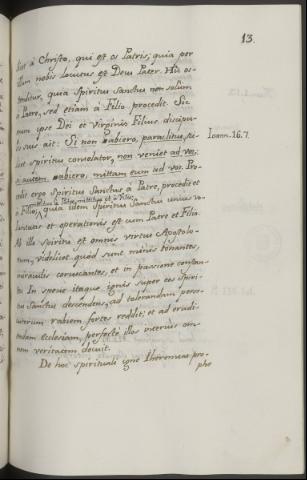 13.
dict à Christo, qui est os Patris; quia per
illam nobis locutus est Deus Pater. Hic os-
tenditur, quia Spiritus Sanctus non solum
a Patre, sed etiam à Filio procedit. Sic
enim ipse Dei et Virginis Filius discipu-
lis suis ait: Si non abiero, paraclitus, sci-
licet spiritus consolator, non veniet ad vos;
Ioann. 16. 7.
si autem abiero, mittam eum ad vos. Pro-
cedit ergo Spiritus Sanctus à Patre, procedit et
mittitur à Patre, mittitur et à Filio;
à Filio, quia idem Spiritus Sanctus unius vo-
luntatis et operationis est cum Patre et Filio.
Ab illo spiritu est omnis virtus Apostolo-
rum, videlicet quod sunt minis tonantes,
miraculis coruscantes, et in passione constan-
tes. In specie itaque ignis super eos Spiri-
tus Sanctus descendens, ad tolerandam perse-
cutorum rabiem fortes reddit; et ad erudi-
endam ecclesiam, perfectè illos interiùs om-
nem veritatem docuit.
De hoc spirituali igne Iheremias pro-
phe